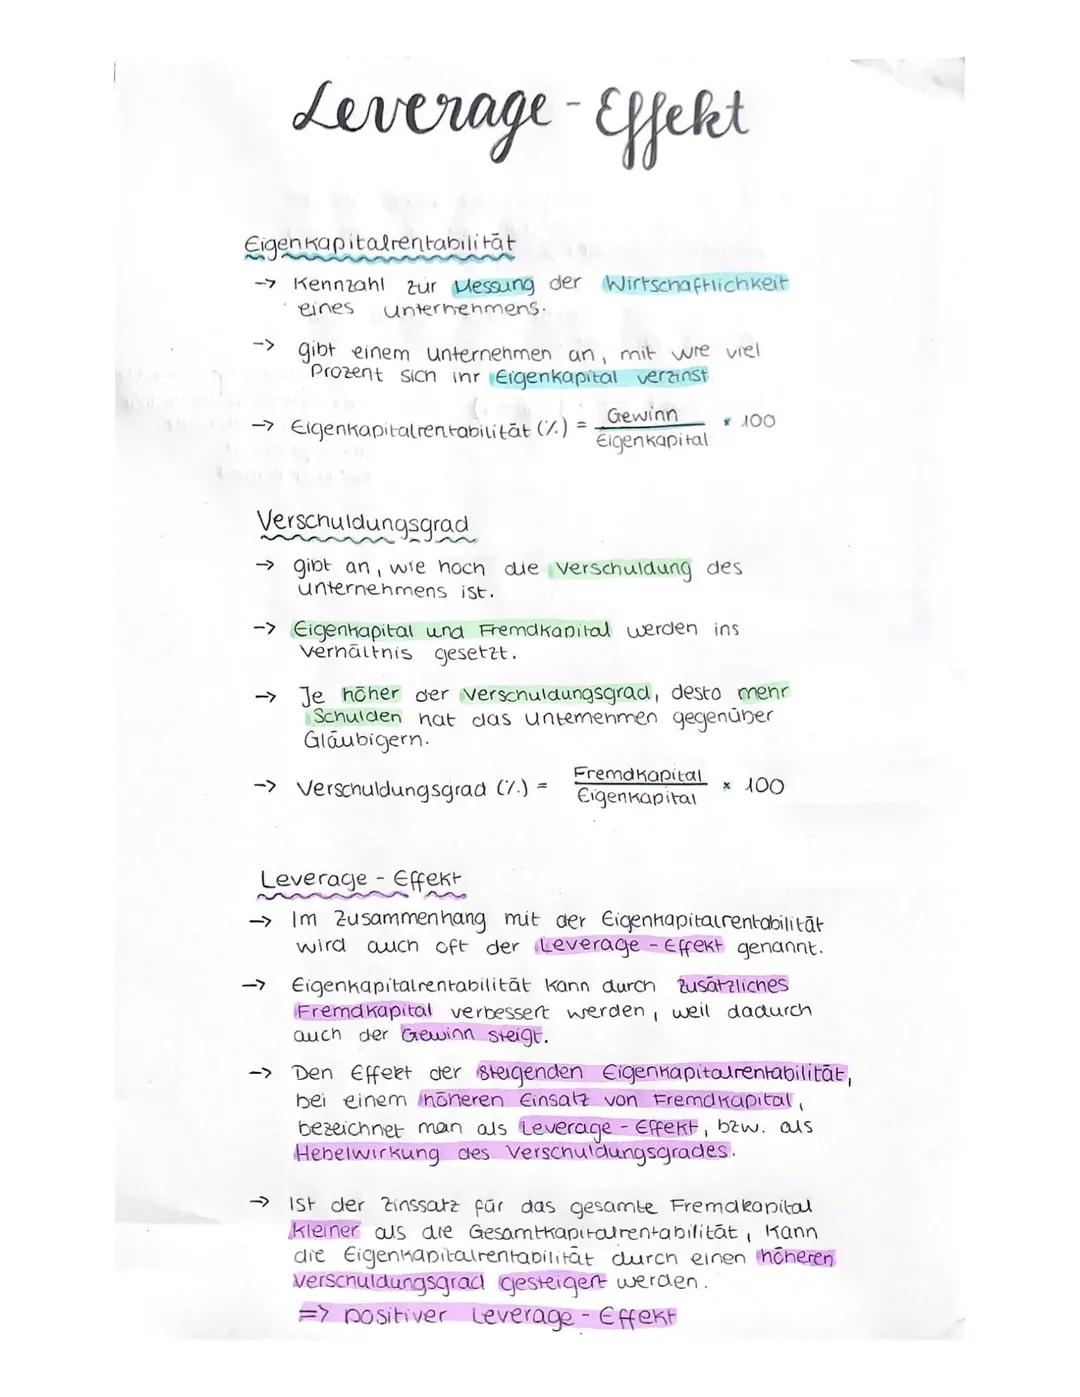 Leverage-Effekt
Eigenkapitalrentabilität
-> Kennzahl zur Messung der Wirtschaftlichkeit
eines Unternehmens.
-> gibt einem Unternehmen an, mit wie viel
Prozent sich ihr Eigenkapital verzinst
-> Eigenkapitalrentabilität (%) = Gewinn / Eigenkapital * 100
Verschuldungsgrad
-> gibt an, wie hoch die Verschuldung des
Unternehmens ist.
-> Eigenkapital und Fremdkapital werden ins
Verhältnis gesetzt.
-> Je höher der Verschuldungsgrad, desto mehr
Schulden hat das Unternehmen gegenüber
Gläubigern.
-> Verschuldungsgrad (%) = Fremdkapital / Eigenkapital * 100
Leverage - Effekt
-> Im Zusammenhang mit der Eigenkapitalrentabilität
wird auch oft der Leverage - Effekt genannt.
-> Eigenkapitalrentabilität kann durch zusätzliches
Fremdkapital verbessert werden, weil dadurch
auch der Gewinn steigt.
-> Den Effekt der steigenden Eigenkapitalrentabilität,
bei einem höheren Einsatz von Fremdkapital,
bezeichnet man als Leverage - Effekt, bzw. als
Hebelwirkung des Verschuldungsgrades.
-> Ist der Zinssatz für das gesamte Fremdkapital
kleiner als die Gesamtkapitalrentabilität, kann
die Eigenkapitalrentabilität durch einen höheren
Verschuldungsgrad gesteigert werden.
=> positiver Leverage - Effekt